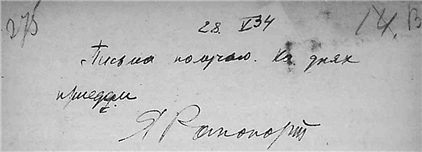 275
28. V 34
14. В
Письма получаю. На днях
приедем
Я Рапопорт